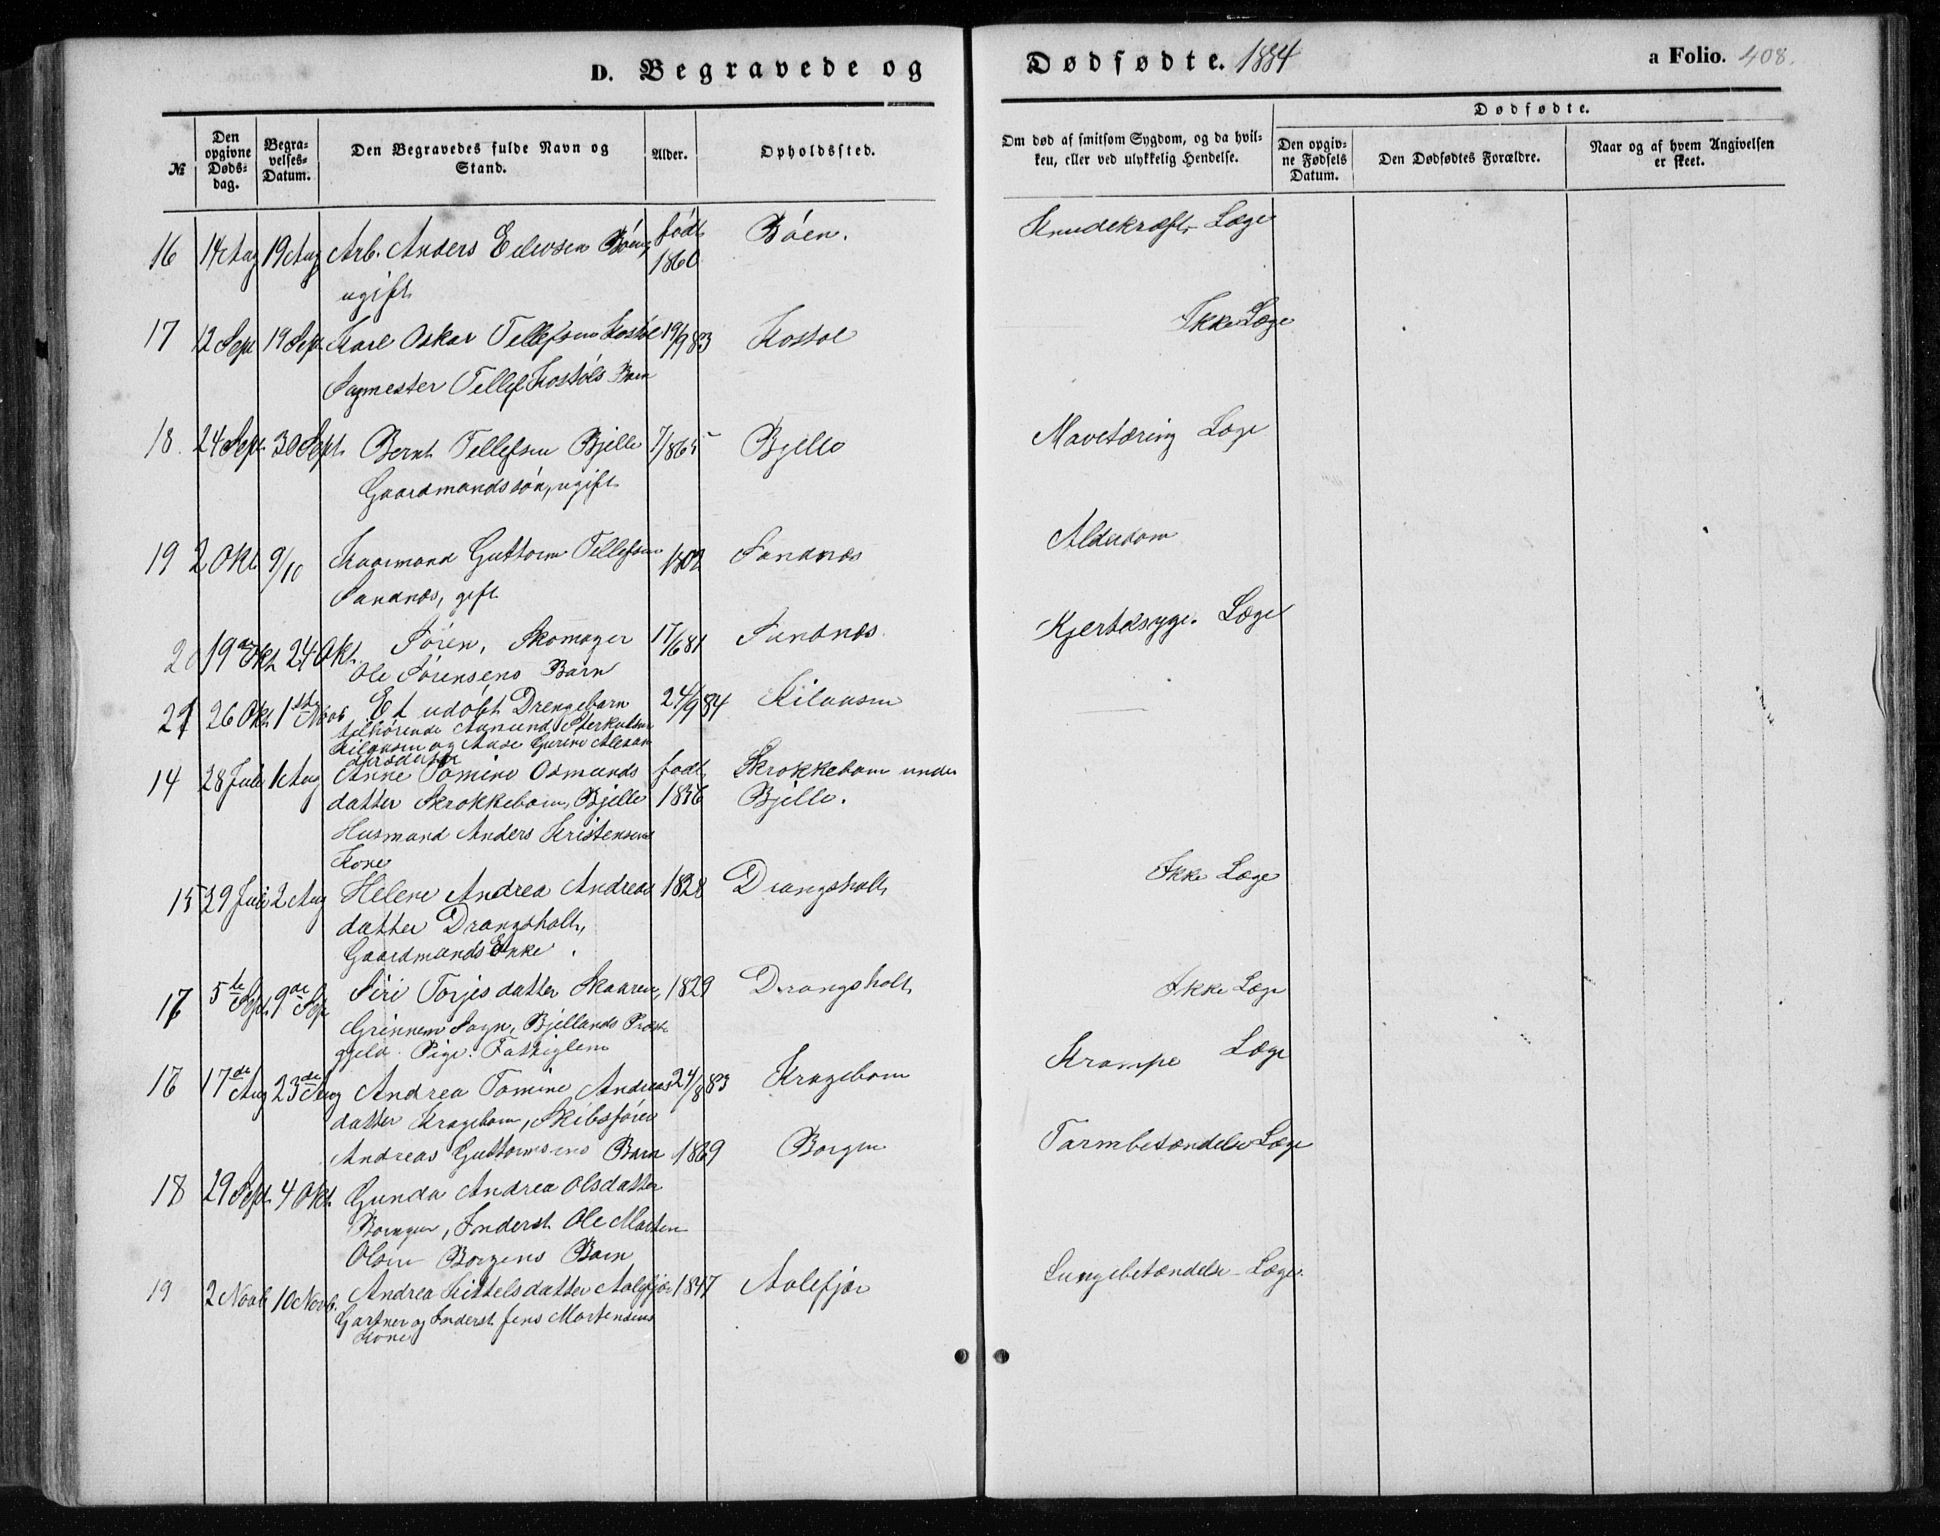 D. Begravede og Dødfødte. 1884
a Folio. 408.
№
Den opgivne Døds-dag.
Begra-velses-Datum.
Den Begravedes fulde Navn og Stand.
Alder.
Opholdssted.
Om død af smitsom Sygdom, og da hvil-
ken, eller ved ulykkelig Hendelse.
Dødfødte.
Den opgiv-ne Fødsels Datum.
Den Dødfødtes Forældre.
Naar og af hvem Angivelsen er skeet.
16 14 Aug 19 Aug Arb. Anders Eilevsen Bøen, født Bøen. Knudekræft. Læge
ugift 1860
17 12 Sept 19 Sept Karl Oskar Tellefsen Kostøl 19/9 83 Kostøl Ikke Læge
Sagmester Tellef Kostøls Barn
18. 24 Sept. 30 Sept. Bernt Tellefsen Bjelle 7/8 65 Bjelle Mavetæring Læge
Gaardmandssøn, ugift
19 2 Okt. 9/10 Kaarmand Guttorm Tellefsen 1802 Sandnæs Alderdom
Sandnæs, gift
20 19de Okt. 24 Okt. Søren, Skomager 17/6 81 Sandnæs. Kjertelsyge. Læge
Ole Sørensens Barn
21 26 Okt. 1ste Novb Et udøbt Drengebarn 24/9 84 Kilaasen
tilhørende Aanund Sterkulsen
Kilaasen og Aase Gurine Alexan
dersdatter
14 28 Juli 1 Aug Anne Tomine Osmunds født Skrokkebom under
datter Skrokkebom, Bjelle 1836 Bjelle.
Husmand Anders Kristensens
Kone
15 29 Juli 2 Aug Helene Andrea Andreas 1828 Drangsholt Ikke Læge
datter Drangsholt,
Gaardmands Enke.
17 5te Sept 9de Sept Siri Torjesdatter Skaaren, 1829 Drangsholt Ikke Læge
Grinnem Sogn, Bjellands Præste
gjeld. Pige. Fattiglem
16 17de Aug 23de Aug Andrea Tomine Andreas 24/8 83 Kragebom Krampe Læge
datter Kragebom, Skibsfører
Andreas Guttormsens Barn
18 29 Sept. 4 Okt. Gunda Andrea Olsdatter 1869 Borgen Tarmbetændelse Læge
Borgen, Inderst Ole Martin
Olsen Borgens Barn
19 2 Novb 10 Novb. Andrea Kittelsdatter Aalefjær 1847 Aalefjær Lungebetændelse - Læge.
Gartner og Inderst Jens Mortensens
Kone